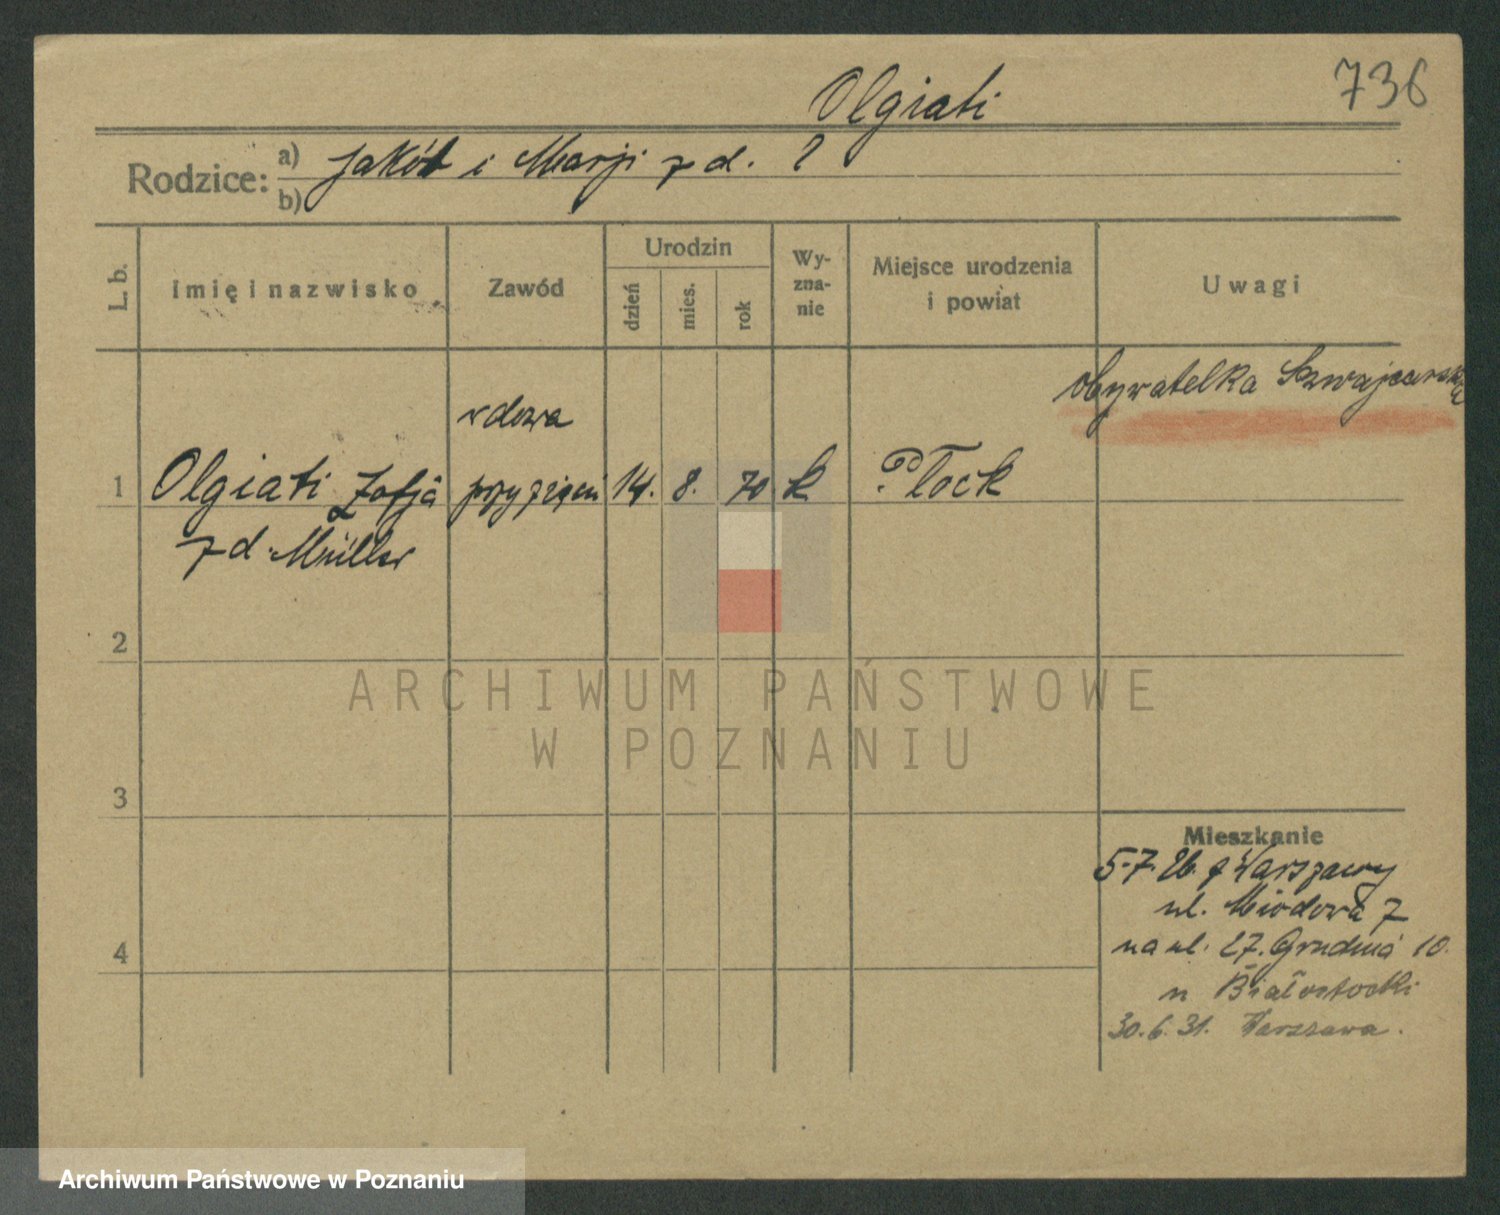 Olgiati
736
Rodzice: a) Jakób i Marji z d. ?
b)
L. b.
imię i nazwisko
Zawód
Urodzin
dzień
mies.
rok
Wy-
zna-
nie
Miejsce urodzenia
i powiat
Uwagi
obywatelka Szwajcarska
wdowa
1 Olgiati Zofja przy zięciu 14. 8. 70 k Płock
z d. Müller
2
3
4
ARCHIWUM PAŃSTWOWE
W POZNANIU
Mieszkanie
5.7.26. z Warszawy
ul. Miodowa 7
na ul. 27. Grudnia 10.
u Białostocki
30.6.31. Warszawa.
Archiwum Państwowe w Poznaniu